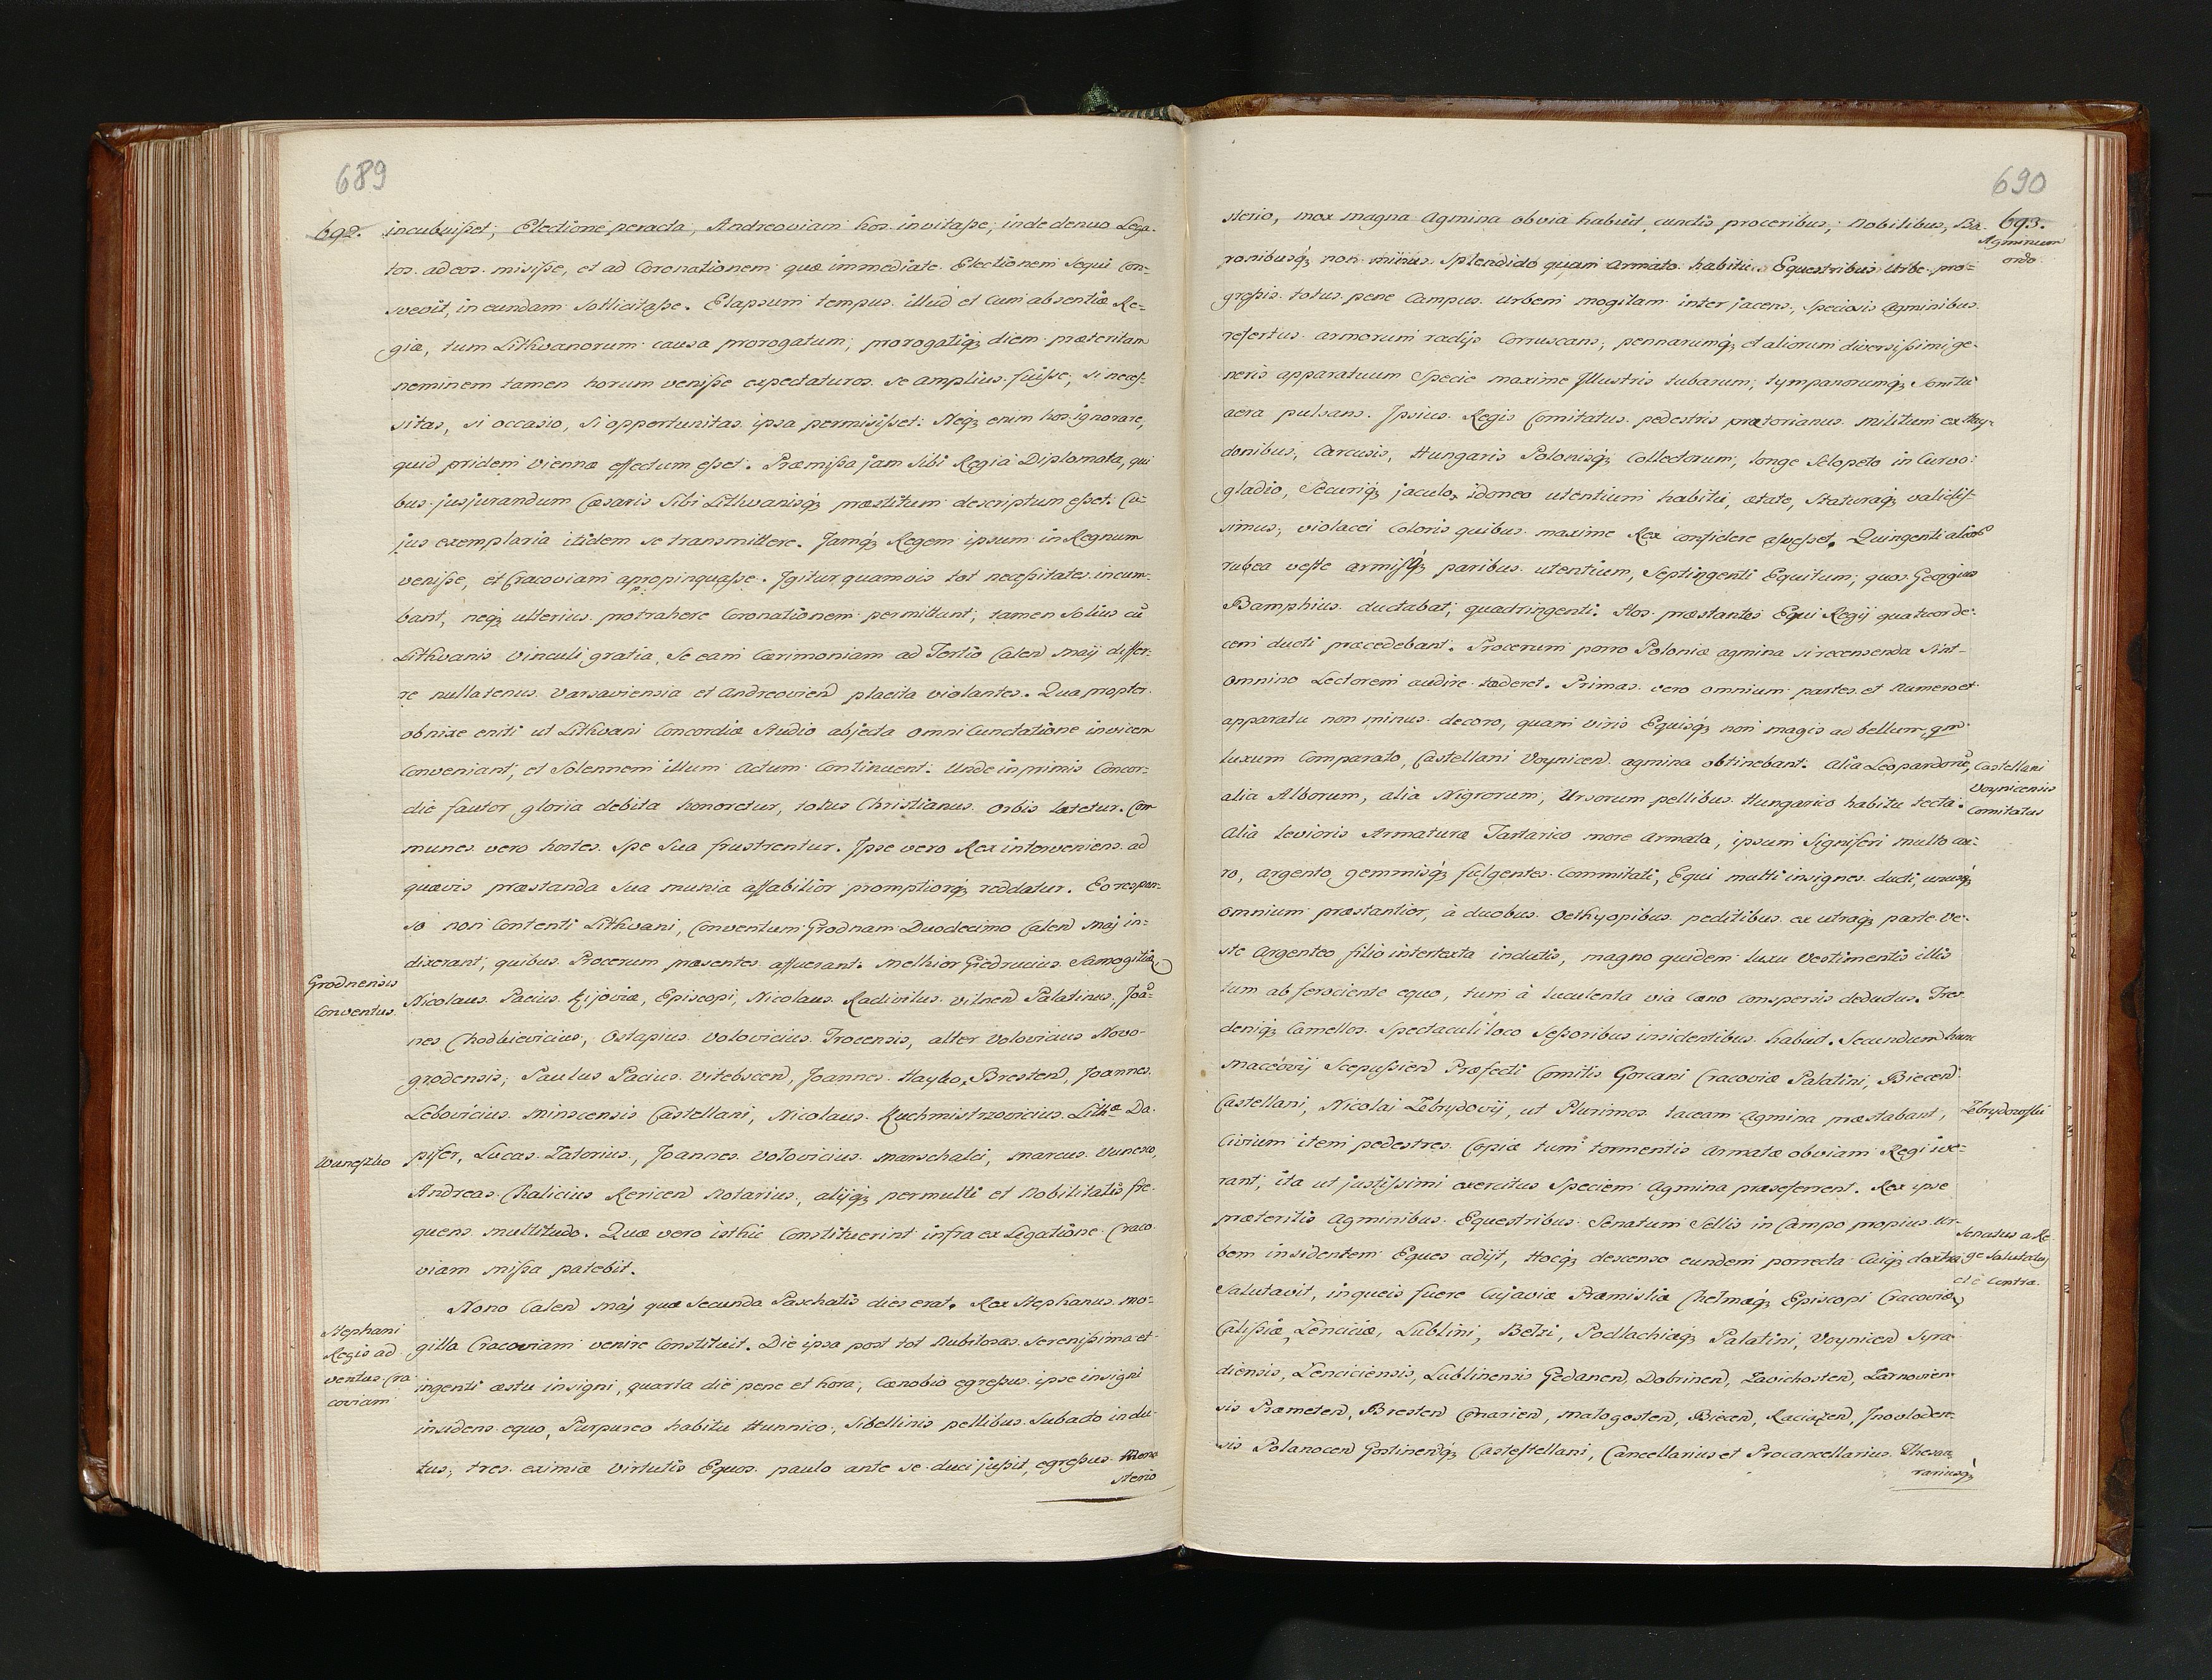 689
692. incubuisset; Electione peracta, Andreoviam hos invitasse; inde denuo Lega-
tos ad eos misisse, et ad Coronationem quæ immediate Electionem Sequi Con-
svevit, in eundam Sollicitasse. Elapsum tempus illud et Cum absentiæ Re-
giæ, tum Lithvanorum causa prorogatum; prorogatiq₃ diem prætentam
neminem tamen horum venisse expectaturos se amplius fuisse, si neces-
sitas, si occasio, Si opportunitas ipsa permisisset: Neq₃ enim hos ignorare,
quid pridem Viennæ effectum esset. Præmissa jam Sibi Regia Diplomata, qui
bus jusjurandum Cæsaris Sibi Lithvanisq₃ præstitum descriptum esset. Cu-
jus exemplaria itidem se transmittere. Jamq₃ Regem ipsum in Regnum
venisse, et Cracoviam apropinquasse. Igitur quamvis tot necessitates incum-
bant, neq₃ ulterius protrahere Coronationem permittant; tamen Solius cū
Lithvanis Vinculi gratia, Se eam Cærimoniam ad Tertio Calen Maij differ-
re nullatenus Varsaviensia et Andreovien placita violantes. Quapropter
obnixe eniti ut Lithvani Concordiæ Studio abjecta omni Cunctatione invicem
Conveniant, et Solennem illum Actum Continuent. Unde inprimis Concor-
diæ fautor gloria debita honoretur, totus Christianus Orbis lætetur. Com
munes vero hostes Spe Sua frustrentur. Ipse vero Rex interveniens ad
quævis præstanda Sua munia affabilior promptiorq₃ reddatur. Eo respon-
so non Contenti Lithvani, Conventum Grodnam Duodecimo Calen Maj in-
dixerant; quibus Procerum præsentes affuerant. Melhior Giedrucius Samogitiæ,
Grodnensis
Conventus
Nicolaus Pacius Kijoviæ, Episcopi, Nicolaus Radivilus Vilnen Palatinus, Joā-
nes Chodkievicius, Ostapius Volovicius Trocensis, alter Volovicius Novo-
grodensis; Paulus Pacius Vitebscen, Joannes Hayko, Bresten, Joannes
Lebovicius Minscensis Castellani, Nicolaus Kuchmistrzovicius Lithæ Da-
Wuneszko
pifer, Lucas Zatorius, Joannes Volovicius Marschalci, Marcus Vunexo,
Andreas Chalicius Rericen Notarius, alijq₃ permulti et Nobilitatis fre-
quens multitudo. Quæ vero isthic Constituerint infra ex Legatione Craco
viam missa patebit.
Nono Calen Maj quæ Secunda Paschatis dies erat. Rex Stephanus Mo-
Stephani
Regis ad
ventus Cra
coviam
gilla Cracoviam venire Constituit. Die ipsa post tot Nubilosas Serenissima et
ingenti æstu insigni, quarta die pene et hora, Cænobio egressus ipse insigni
insidens equo, Purpureo habitu Hunnico, Sibellinis pellibus Subacto indu-
tus, tres eximiæ Virtutis Equos paulo ante se duci jussit, egressus Mona
sterio
690
693.
sterio, mox magna Agmina obvia habuit, cunctis proceribus, Nobilibus, Ba-
Agminum
ordo
ronibusq₃ non minus Splendido quam Armato habitu Equestribus Urbe pro-
gressis totus pene Campus Urbem Mogilam inter jacens, Speciosis Agminibus
refertus armorum radijs Corruscans, pennarumq₃ et aliorum diversissimi ge-
neris apparatuum Specie maxime Illustris tubarum, tympanorumq₃ Sonitu
aera pulsans. Ipsius Regis Comitatus pedestris prætorianus Militum ex Hay-
donibus, Carcusis, Hungaris Polonisq₃ Collectorum, longe Sclopeto in Curvo
gladio, Securiq₃ jaculo, idoneo utentium habitu, ætate, Staturaq₃ validis-
simus, violacei Coloris quibus maxime Rex Confidere asvesset. Quingenti alios
rubea veste armisq₃ paribus utentium, Septingenti Equitum, quos Georgius
Bamphius ductabat, quadringenti. Hos præstantes Equi Regij quatuorde-
cem ducti præcedebant. Procerum porro Poloniæ agmina si recensenda Sint
omnino Lectorem audire tæderet. Primas vero omnium partes et Numero et
apparatu non minus decoro, quam Viris Equisq₃ non magis ad bellum, qm
luxum Comparato, Castellani Voynicen agmina obtinebant. Alia Leopardorū,
Castellani
Voynicensis
Comitatus
alia Alborum, alia Nigrorum, Ursorum pellibus Hungarico habitu tecta.
Alia levioris Armaturæ Tartarico more Armata, ipsum Signiferi multo au-
ro, argento gemmisq₃ fulgentes Commitati, Equi multi insignes ducti, unusq₃
omnium præstantior, à duobus Oethyopibus peditibus ex utraq₃ parte Ve-
ste Argenteo filio intertexta indutis, magno quidem luxu Vestimentis illis
tum ab ferociente equo, tum à luculenta via Cæno Conspersis deductus. Tres
deniq₃ Camellos Spectaculi loco Sessoribus insidentibus habuit. Secundum hunc
Maceovij Scepusien Præfecti Comitis Gorcani Cracoviæ Palatini, Biecen
Castellani, Nicolai Zebrydovij, ut Plurimos taceam Agmina præstabant,
Zebrydowski
Civium item pedestres Copiæ tum tormentis Armatæ obviam Regi ive-
rant, ita ut justissimi exercitus Speciem Agmina præseferrent. Rex ipse
præteritis Agminibus Equestribus Senatum Sellis in Campo propius Ur-
Senatus a Re
ge Salutatus
et è Contra
bem insidentem Eques adijt, Hocq₃ descenso eundem porrecta Cuiq₃ dextra
Salutavit, in queis fuere Cujaviæ Præmisliæ Chelmæq₃ Episcopi Cracoviæ,
Calissiæ, Lenciciæ, Lublini, Belzi, Podlachiæq₃ Palatini, Voynicen Syra-
diensis, Lenciciensis, Lublinensis Gedanen, Dobrinen, Zavichosten, Zarnovien-
sis Præmeten, Bresten Conarien, Malogosten, Biecen, Raciazen, Inovloden-
sis Polanocen Gostinenq₃ Castestellani, Cancellarius et Procancellarius Thesau
rariusq₃